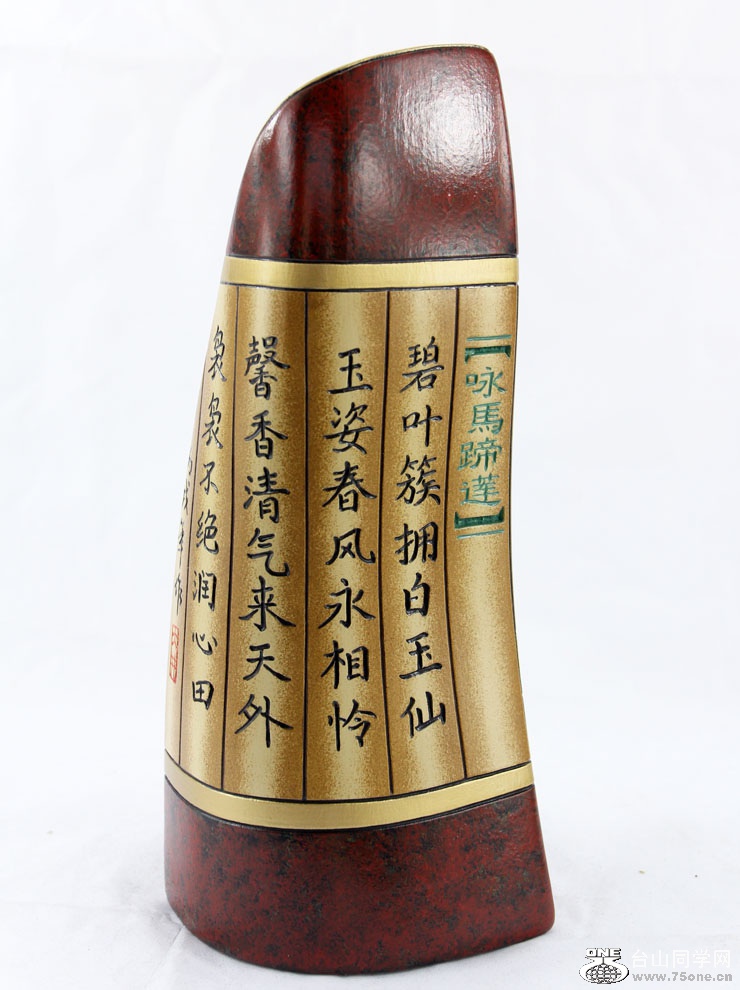 【咏馬蹄莲】
碧叶簇拥白玉仙
玉姿春风永相怜
馨香清气来天外
袅袅不绝润心田
戌年作
ONE
台山同学网
www.75one.cn